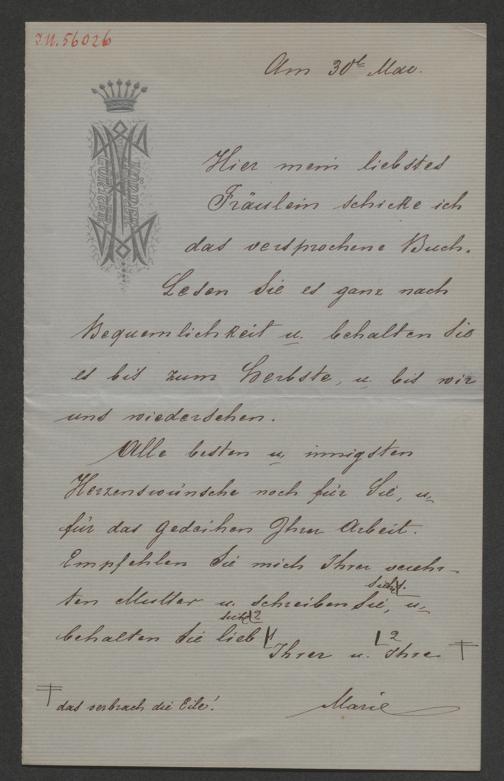 I.N. 56026
Am 30te Mai.
Hier mein liebstes
Fräulein schicke ich
das versprochene Buch.
Lesen Sie es ganz nach
Bequemlichkeit u. behalten Sie
es bis zum Herbste, u. bis wir
uns wiedersehen.
Alle besten u. innigsten
Herzenswünsche noch für Sie, u.
für das Gedeihen Ihrer Arbeit.
Empfehlen Sie mich Ihrer verehr-
ten Mutter u. schreiben Sie, u.
behalten Sie lieb
Ihrer u. Ihre
das verbrach die Eile!
Marie